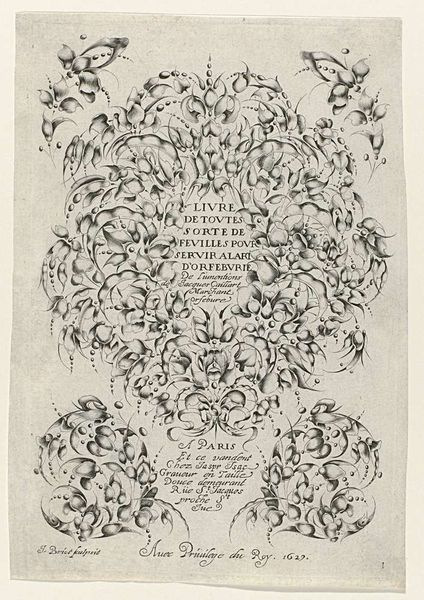 LIVRE
DE TOVTES
SORTE DE
FEVILLES POVR
SERVIR A LART
D'ORFEBVRIE
De l'inventions
de Jacques Caillart
Marchant
orfebure
A PARIS
Et ce vandent
Chez Jaspr Isac
Graveur en Taille
Douce demeurant
Rüe St. Jacques
proche St
Yue
J. Briot sculpsit
Auec Priuilege du Roy. 1629.